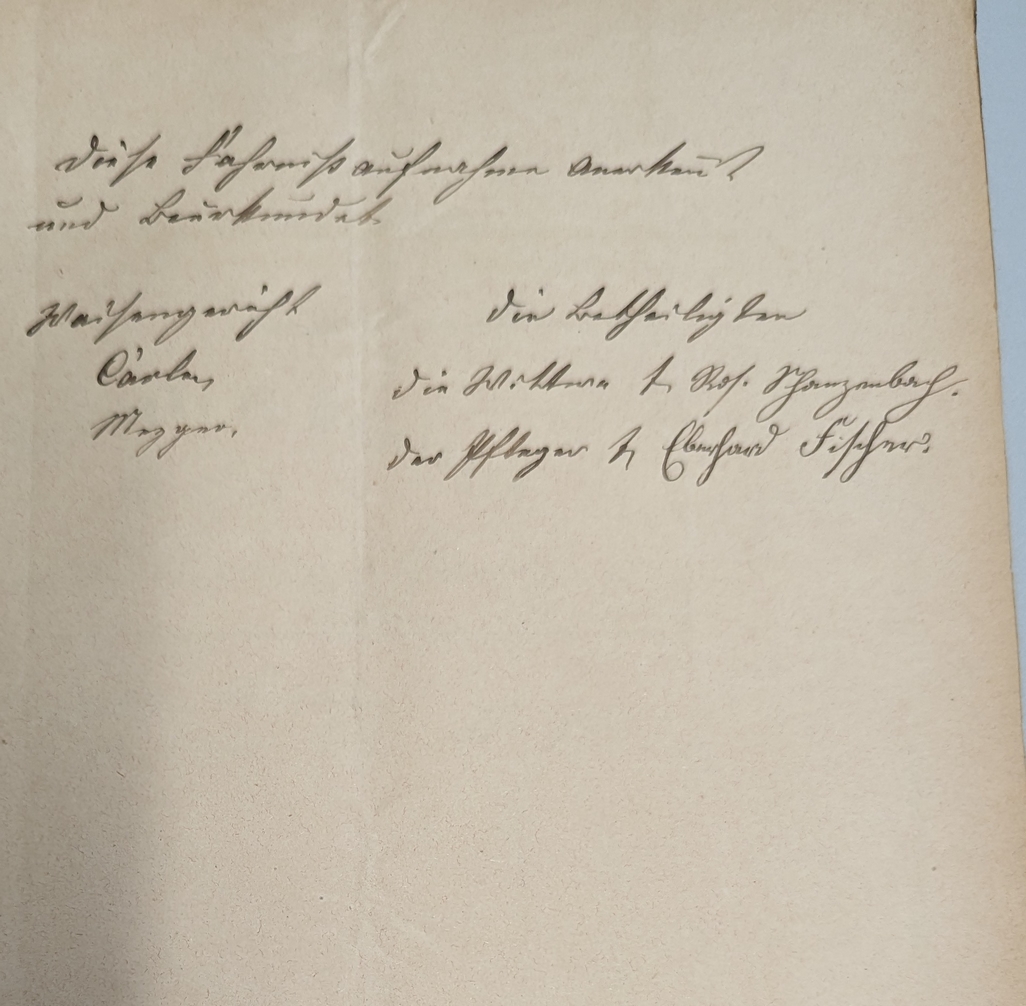 Diese Fahrnißaufnahme anerken̄t
und Beurkundet
Waisengericht
Carle,
Mezger.
Die Betheiligten
die Wittwe t. Ros. Schanzenbach.
der Pfleger t. Eberhard Fischer.